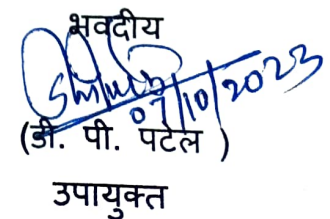 भवदीय
07/10/2023
(डी. पी. पटेल )
उपायुक्त